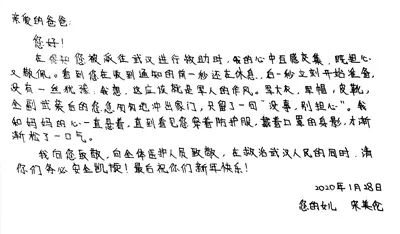 亲爱的爸爸:
您好!
在得知您被派在武汉进行救助时,我的心中百感交集,既担心
又敬佩。看到您在收到通知的前一秒还在休息,后一秒立刻开始准备,
没有一丝犹豫,我想,这应该就是军人的作风。军大衣,军帽,皮靴,
全副武装后的您急匆匆地冲出家门,只留了一句“没事,别担心”。我
和妈妈的心一直悬着,直到看见您穿着防护服,戴着口罩的身影,才渐
渐松了一口气。
我向您致敬,向全体医护人员致敬,在救治武汉人民的同时,请
你们务必安全凯旋!最后祝你们新年快乐!
2020年1月28日
您的女儿 宋美伦